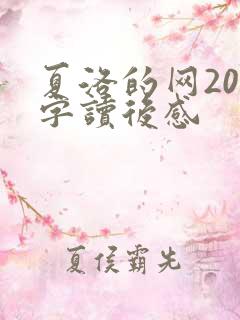 夏洛的网20
字讀後感
夏侯霸先